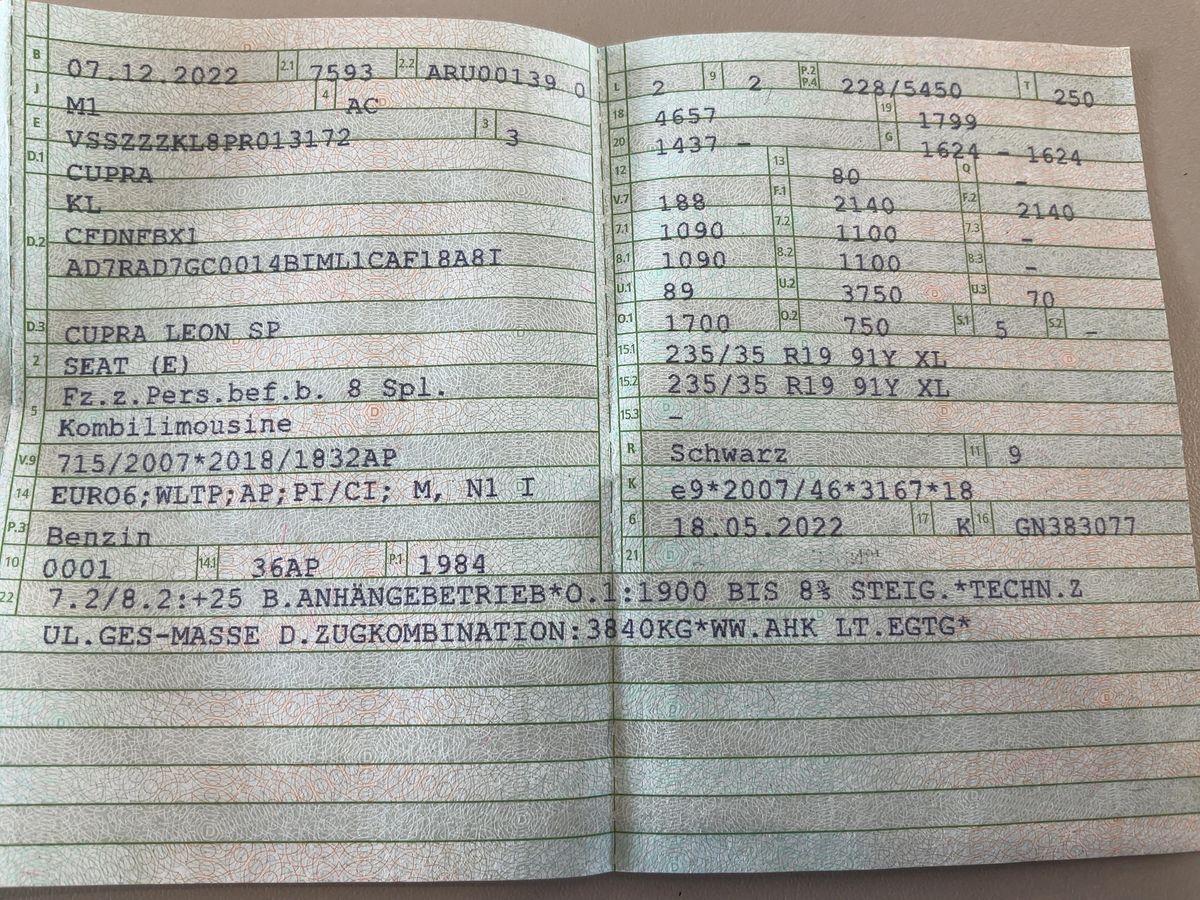 B 07.12.2022 2.1 7593 2.2 ARU00139 0
J M1 4 AC
E VSSZZZKL8PR013172 3 3
D.1 CUPRA
KL
D.2 CFDNFBX1
AD7RAD7GC0014BIML1CAF18A8I
D.3 CUPRA LEON SP
2 SEAT (E)
Fz.z.Pers.bef.b. 8 Spl.
5 Kombilimousine
V.9 715/2007*2018/1832AP
14 EURO6;WLTP;AP;PI/CI; M, N1 I
P.3 Benzin
10 0001 14.1 36AP P.1 1984
L 2 9 2 P.2 P.4 228/5450 T 250
18 4657 19 1799
20 1437 - G 1624 - 1624
12 13 80 Q -
V.7 188 F.1 2140 F.2 2140
7.1 1090 7.2 1100 7.3 -
8.1 1090 8.2 1100 8.3 -
U.1 89 U.2 3750 U.3 70
O.1 1700 O.2 750 S.1 5 S.2 -
15.1 235/35 R19 91Y XL
15.2 235/35 R19 91Y XL
15.3 -
R Schwarz 11 9
K e9*2007/46*3167*18
6 18.05.2022 17 K 16 GN383077
21
22 7.2/8.2:+25 B.ANHÄNGEBETRIEB*O.1:1900 BIS 8% STEIG.*TECHN.Z
UL.GES-MASSE D.ZUGKOMBINATION:3840KG*WW.AHK LT.EGTG*